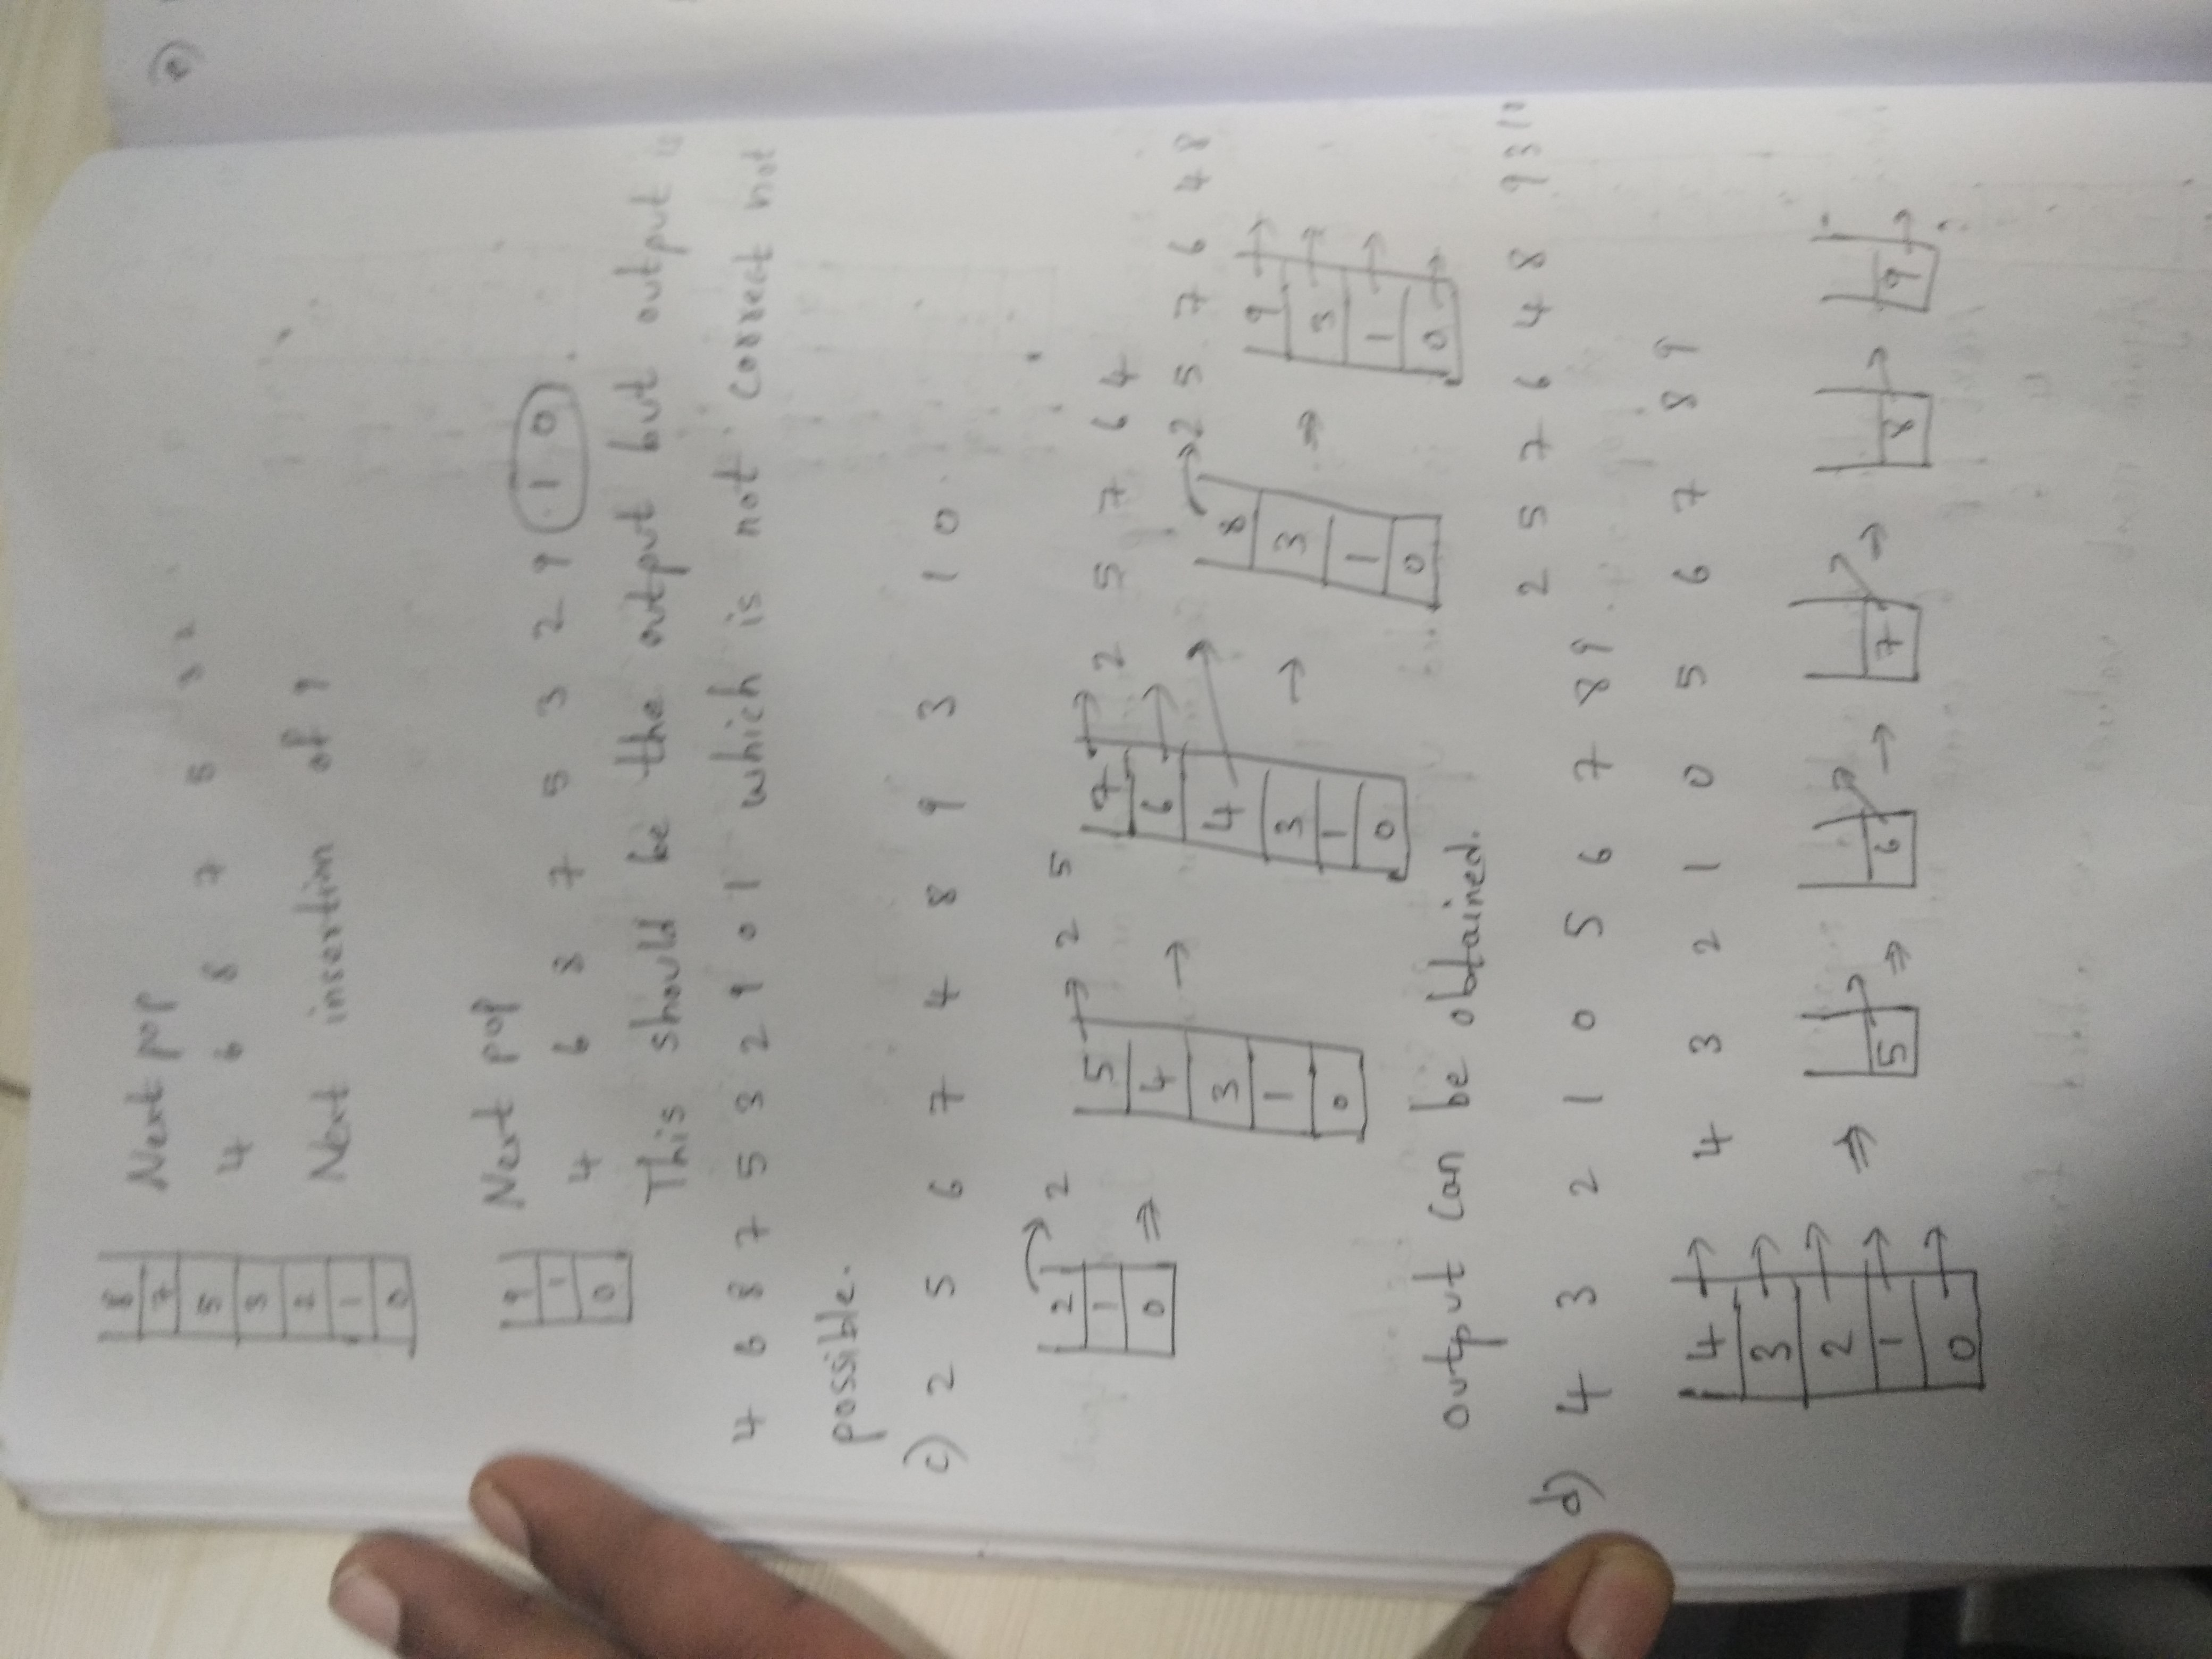 8
7
5
3
2
1
0
Next pop
4 6 8 7 5 3 2
Next insertion of 9
9
1
0
Next pop
4 6 8 7 5 3 2 9 1 0
This should be the output but output is
4 6 8 7 5 3 2 9 0 1 which is not correct not
possible.
c) 2 5 6 7 4 8 9 3 1 0
2
1
0
2 ⇒
5
4
3
1
0
2 5 →
7
6
4
3
1
0
2 5 7 6 4 →
8
3
1
0
2 5 7 6 4 8 ⇒
9
3
1
0
output can be obtained. 2 5 7 6 4 8 9 3 1
d) 4 3 2 1 0 5 6 7 8 9
4
3
2
1
0
4 3 2 1 0 5 6 7 8 9
⇒ 5 ⇒ 6 → 7 → 8 9